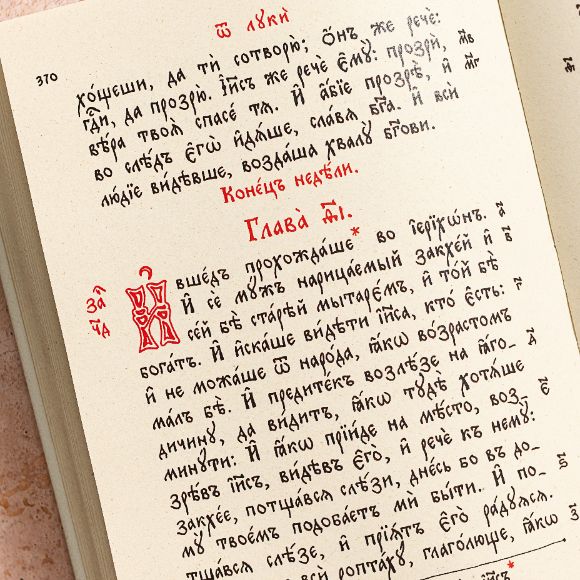 ѿ лꙋкѝ
370
хо́щеши, да тѝ сотворю̀; Ѻ҆́нъ же речѐ:
гдⷭ҇и, да прозрю̀. І҆и҃съ же речѐ є҆мꙋ̀: прозрѝ, м҃в
вѣ́ра твоѧ̀ спасе́ тѧ. И҆ а҆́бїе прозрѣ̀, и҆ м҃г
во слѣ́дъ є҆гѡ̀ и҆дѧ́ше, сла́вѧ бг҃а. И҆ всѝ
лю́дїе ви́дѣвше, возда́ша хвалꙋ̀ бг҃ови.
Коне́цъ недѣ́ли.
Глава̀ д҃і.
И҆ вше́дъ прохожда́ше* во і҆єрїхѡ́нъ. а҃
за҄ И҆ сѐ мꙋ́жъ нарица́емый закхе́й и҆ в҃
ч҃д се́й бѣ̀ старѣ́й мытарє́мъ, и҆ то́й бѣ̀
бога́тъ. И҆ и҆ска́ше ви́дѣти і҆и҃са, кто́ є҆сть: г҃
и҆ не можа́ше ѿ наро́да, ꙗ҆́кѡ во́зрастомъ
ма́лъ бѣ̀. И҆ предите́къ возлѣ́зе на ꙗ҆го- д҃
дичинꙋ, да ви́дитъ, ꙗ҆́кѡ тꙋдѣ̀ хотѧ́ше
минꙋ́ти: И҆ ꙗ҆́кѡ прїи́де на мѣ́сто, воз- є҃
зрѣ́въ і҆и҃съ, ви́дѣвъ є҆го̀, и҆ речѐ къ немꙋ̀:
закхе́е, потща́всѧ слѣ́зи, дне́сь бо въ до-
мꙋ̀ твое́мъ подоба́етъ мѝ бы́ти. И҆ по- ѕ҃
тща́всѧ слѣ́зе, и҆ прїѧ́тъ є҆го̀ ра́дꙋѧсѧ.
всѝ ропта́хꙋ, глаго́люще, ꙗ҆́кѡ з҃